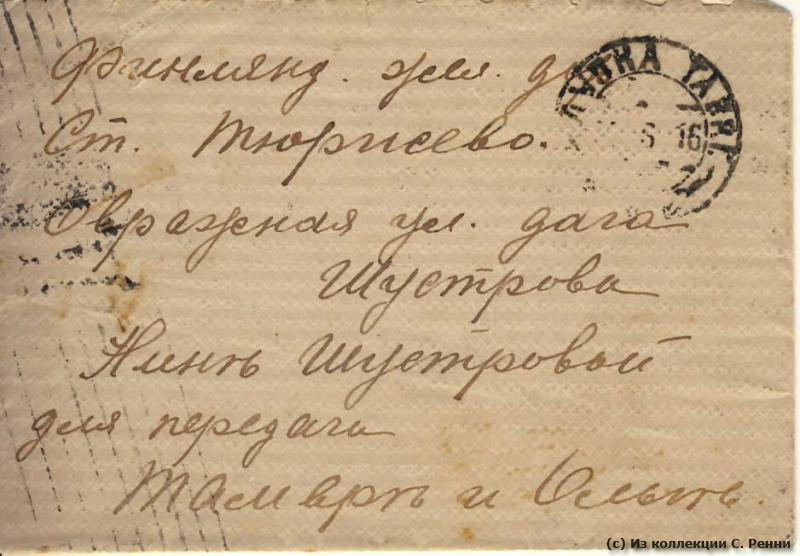 Финлянд. жел. до
Ст. Тюрисево.
Овражная ул. дача
Шустрова
Нинѣ Шустровой
для передачи
Тамарѣ и Ольгѣ.
ЛУПКА ТАВР
16
(c) Из коллекции С. Ренни